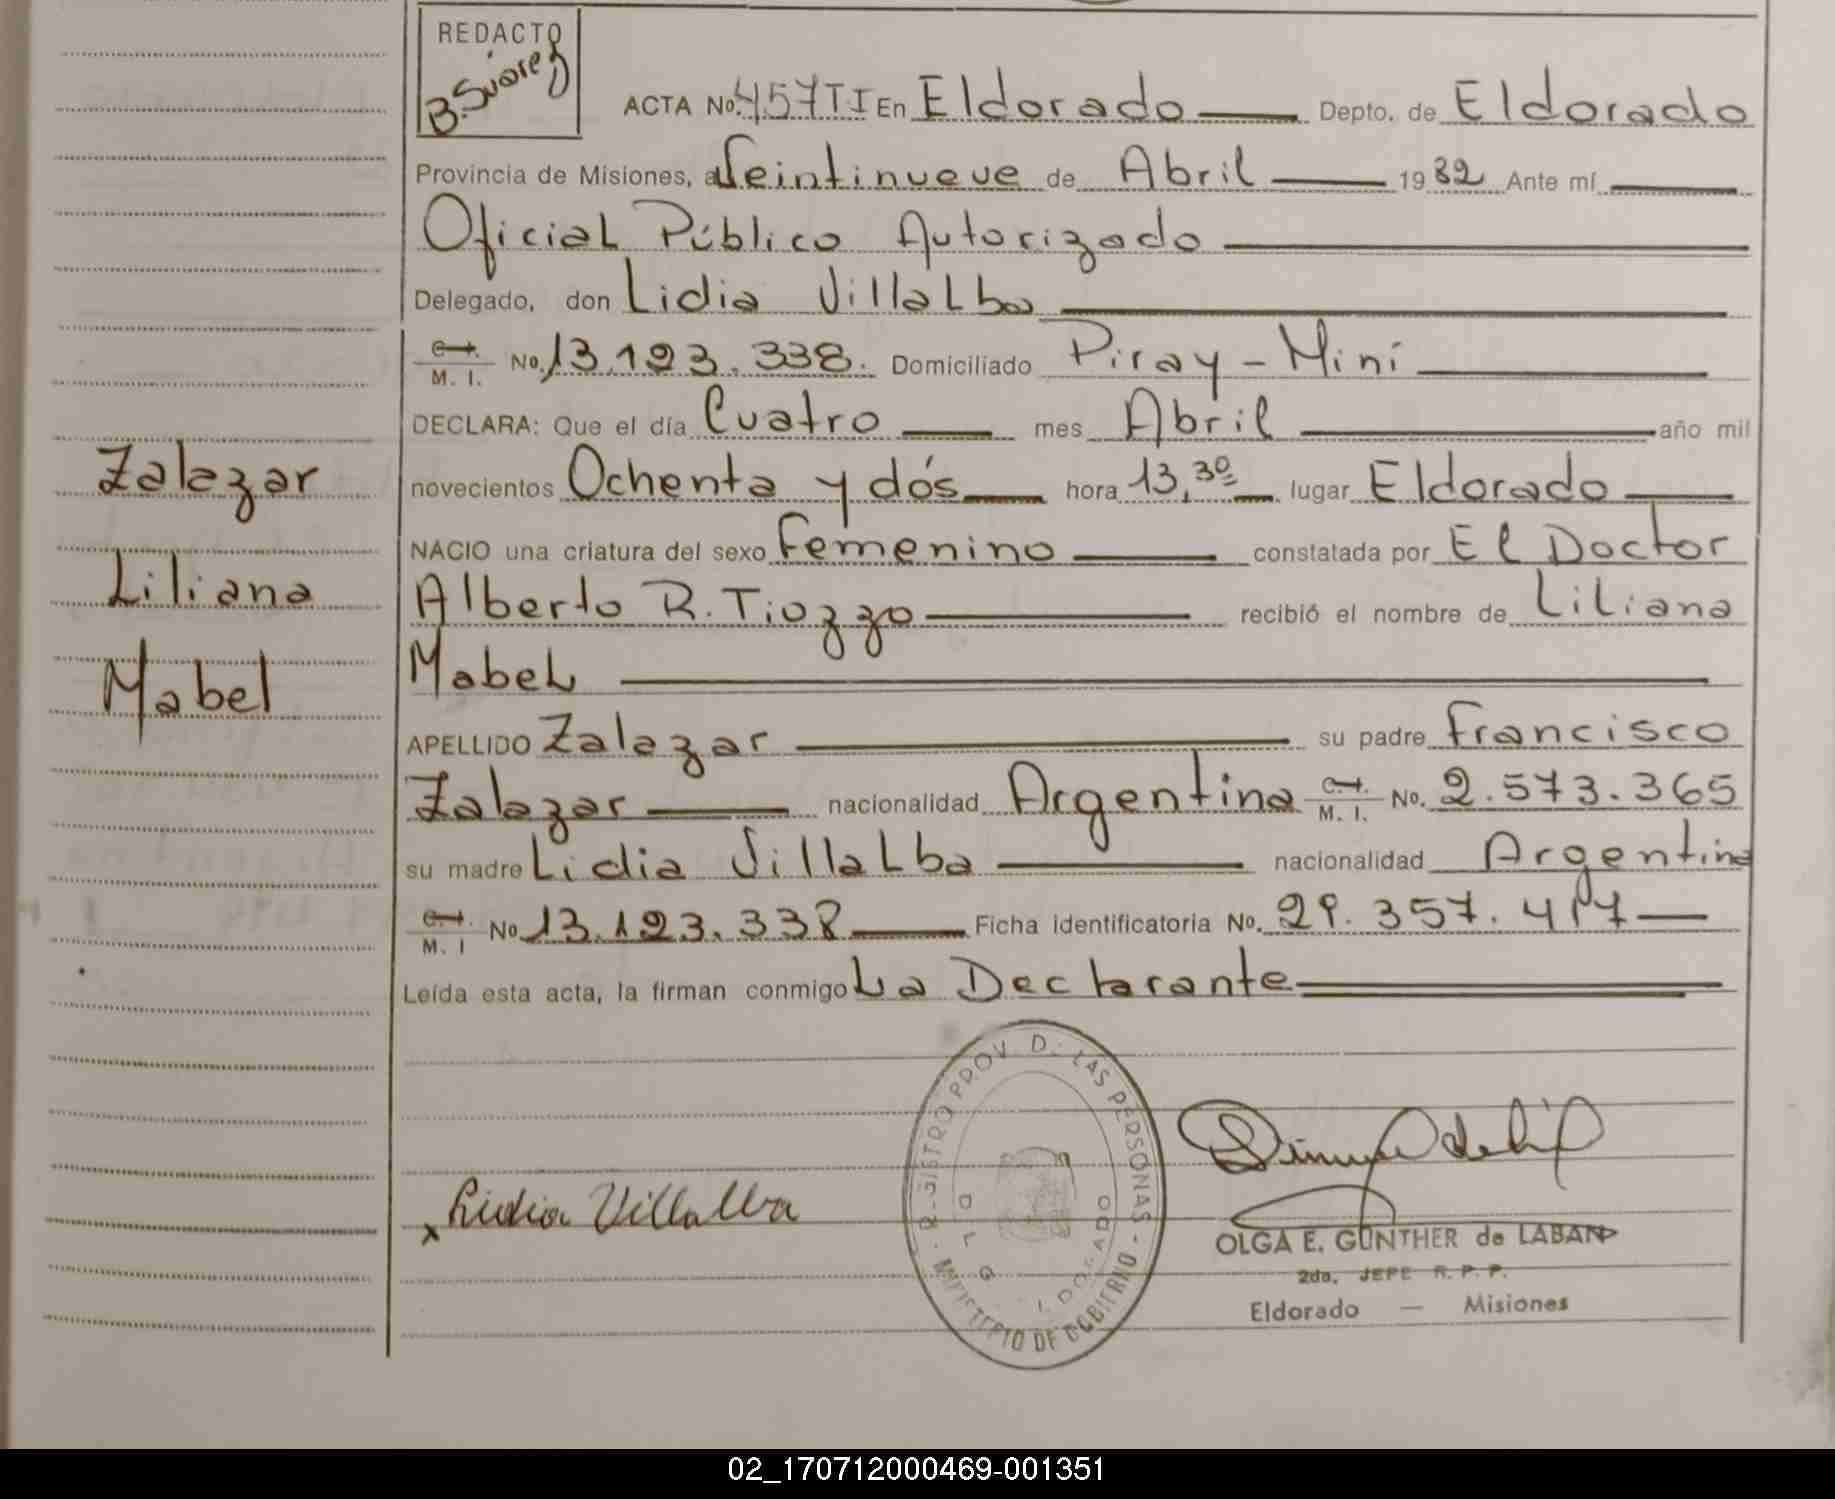 REDACTO
B. Suárez
ACTA No. 457 TI En Eldorado Depto. de Eldorado
Provincia de Misiones, a Veintinueve de Abril 1982 Ante mí
Oficial Público Autorizado
Delegado, don Lidia Villalba
C.I. M. I. No. 13.193.338. Domiciliado Piray-Miní
DECLARA: Que el día Cuatro mes Abril año mil
novecientos Ochenta y dós hora 13,30 lugar Eldorado
NACIO una criatura del sexo Femenino constatada por El Doctor
Alberto R. Tiozzo recibió el nombre de Liliana
Mabel
APELLIDO Zalazar su padre Francisco
Zalazar nacionalidad Argentina C.I. M. I. No. 2.573.365
su madre Lidia Villalba nacionalidad Argentina
C.I. M. I No 13.193.338 Ficha identificatoria No. 29.357.417
Leída esta acta, la firman conmigo La Declarante
Zalazar
Liliana
Mabel
x Lidia Villalba
REGISTRO PROV. DE LAS PERSONAS - MINISTERIO DE GOBIERNO
OLGA E. GUNTHER de LABAND
2da. JEFE R. P. P.
Eldorado — Misiones
02_170712000469-001351